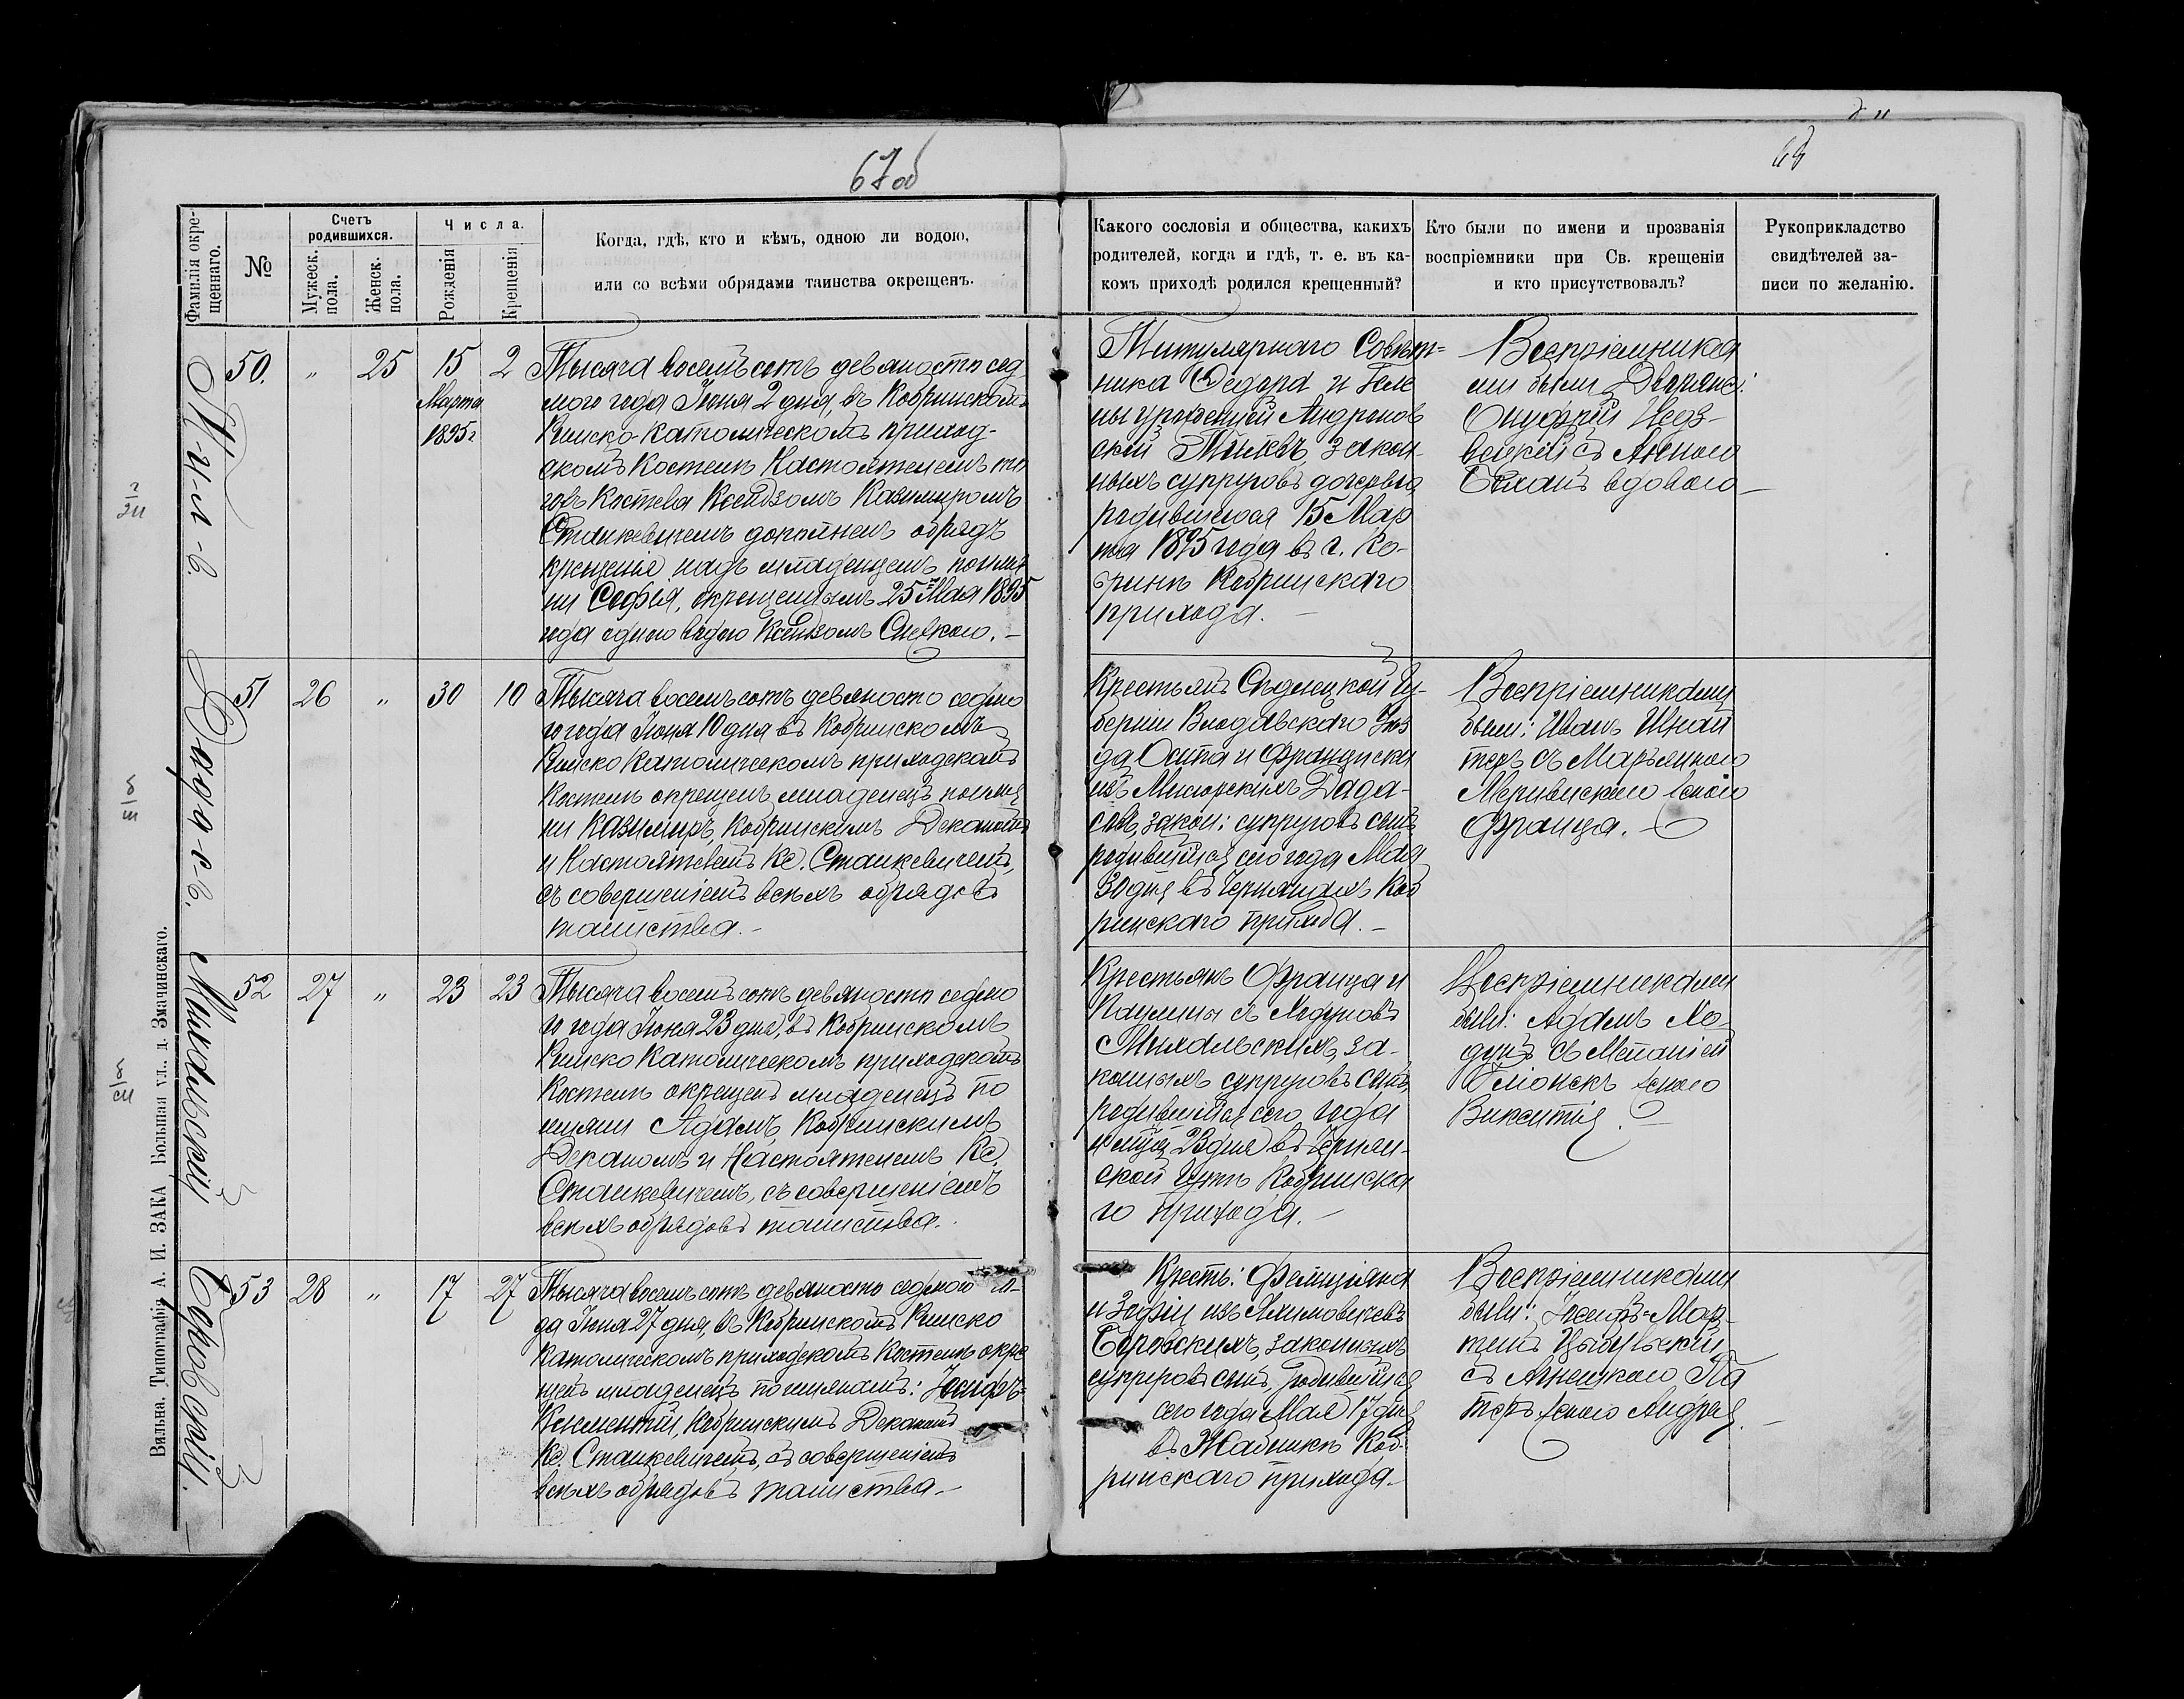 67об
68
Фамилія окре-
щеннаго.
№
Счетъ
родившихся.
Мужеск.
пола.
Женск.
пола.
Числа.
Рожденія
Крещенія
Когда, гдѣ, кто и кѣмъ, одною ли водою,
или со всѣми обрядами таинства окрещенъ.
Какого сословія и общества, какихъ
родителей, когда и гдѣ, т. е. въ ка-
комъ приходѣ родился крещенный?
Кто были по имени и прозванія
воспріемники при Св. крещеніи
и кто присутствовалъ?
Рукоприкладство
свидѣтелей за-
писи по желанію.
50.
"
25
15
Марта
1895г
2
Тысяча восемьсотъ девяносто сед
мого года Іюня 2 дня, въ Кобринскомъ
Римско-Католическомъ приход-
скомъ Костелѣ Настоятелемъ то
гожъ Костела Ксендзомъ Казимиромъ
Станкевичемъ дополненъ обрядъ
крещенія надъ младенцемъ по име
ни Софія, окрещеннымъ 25 Мая 1895
года одною водою Ксендзомъ
Титулярнаго Совѣт=
ника Ѳедора и Геле
ны урожденной
закон
ныхъ супруговъ дочерью,
родившеюся 15 Мар
та 1895 года въ г. Ко-
бринѣ Кобринскаго
прихода. —
Воспріемника
ми были Дворяне:
Онуфрій Недз-
вецкій съ Анною
вдовою —
51
26
"
30
10
Тысяча восемьсотъ девяносто седмо
го года Іюня 10 дня въ Кобринскомъ
Римско Католическомъ приходскомъ
Костелѣ окрещенъ младенецъ по име
ни Казимиръ, Кобринскимъ Деканомъ
и Настоятелемъ Кс. Станкевичемъ,
съ совершеніемъ всѣхъ обрядовъ
таинства. —
Крестьянъ Сѣдлецкой Гу-
берніи Влодавскаго Уѣз
да Осипа и Франциски
изъ
закон: супруговъ сынъ,
родившійся сего года Мая
30 дня въ Чернянахъ Коб
ринскаго прихода. —
Воспріемниками
были: Иванъ
съ Марьяною
женою
Франца. —
52
27
"
23
23
Михальскій
Тысяча восемьсотъ девяносто седмо
го года Іюня 23 дня, въ Кобринскомъ
Римско Католическомъ приходскомъ
Костелѣ окрещенъ младенецъ по
имяни Адамъ, Кобринскимъ
Деканомъ и Настоятелемъ Кс.
Станкевичемъ, съ совершеніемъ
всѣхъ обрядовъ таинства. —
Крестьянъ Франца и
Паулины съ Ходуновъ
Михальскихъ, за-
конныхъ супруговъ сынъ,
родившійся сего года
23 дня въ Чернян-
ской Кобринска
го прихода. —
Воспріемниками
были: Адамъ Хо-
дунъ съ Меланіей
женою
Викентія. —
53
28
"
17
27
Боровскій
Тысяча восемьсотъ девяносто седмого го-
да Іюня 27 дня, въ Кобринскомъ Римско
Католическомъ приходскомъ Костелѣ окре
щенъ младенецъ по имянамъ: Іосифъ-
Климентій, Кобринскимъ Деканомъ
Кс. Станкевичемъ, съ совершеніемъ
всѣхъ обрядовъ таинства —
Крест: Фелиціяна
и Зофіи изъ Якимовичевъ
Боровскихъ, законныхъ
супруговъ сынъ, родившійся
сего года Мая 17 дня
въ Жабинкѣ Коб-
ринскаго прихода —
Воспріемниками
были: Іосифъ-Мар-
тинъ
съ Агнешкою Па
теръ женою Андрея. —
Вильна. Типографія А. И. ЗАКА Большая ул., д. Змачинскаго.